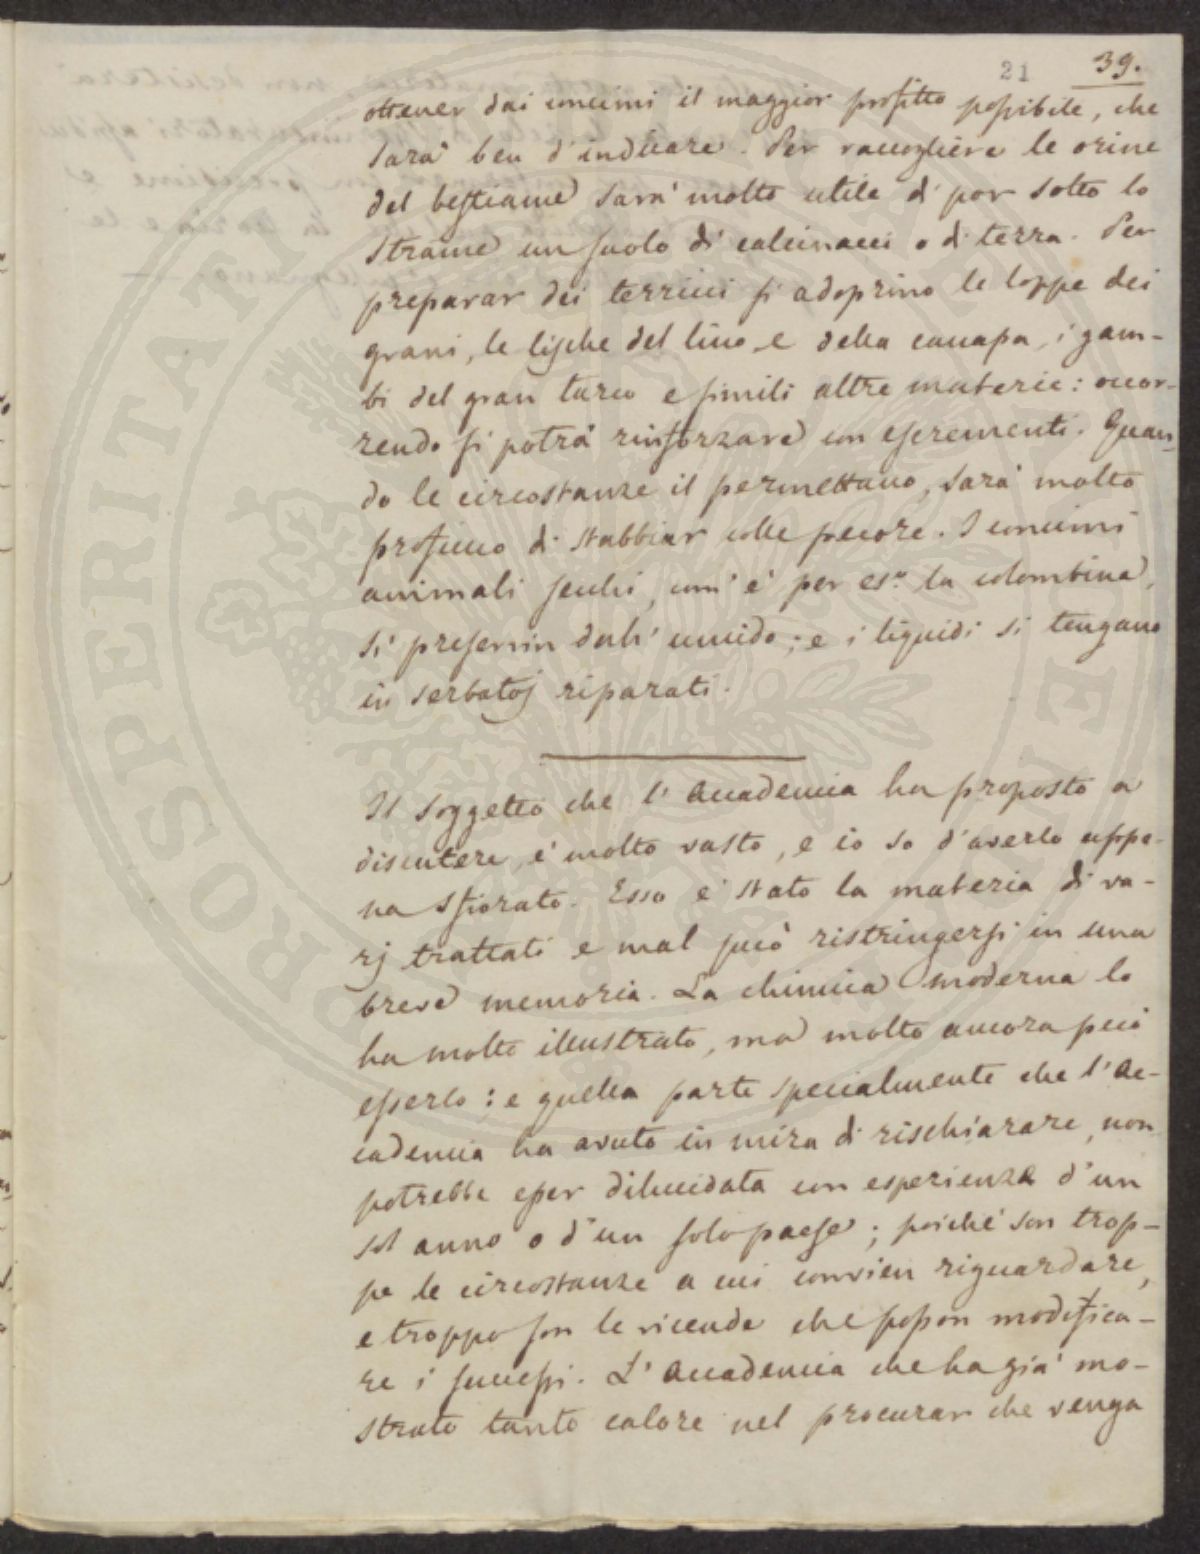 21 39.
ottener dai concimi il maggior profitto possibile, che
sarà ben d'indicare. Per raccogliere le orine
del bestiame sarà molto utile di por sotto lo
strame un suolo di calcinacci o di terra. Per
preparar dei terricci si adoprino le loppe dei
grani, le lische del lino e della canapa, i gam-
bi del gran turco e simili altre materie: occor-
rendo si potrà rinforzare con escrementi. Quan-
do le circostanze il permettano, sarà molto
proficuo di stabbiar colle pecore. I concimi
animali secchi, com'è per es.o la colombina,
si preservin dall'umido; e i liquidi si tengano
in serbatoj riparati.
Il soggetto che l'Accademia ha proposto a
discutere, è molto vasto, e io so d'averlo appe-
na sfiorato. Esso è stato la materia di va-
rj trattati e mal può ristringersi in una
breve memoria. La chimica moderna lo
ha molto illustrato, ma molto ancora può
esserlo: e quella parte specialmente che l'Ac-
cademia ha avuto in mira di rischiarare, non
potrebbe esser dilucidata con esperienze d'un
sol anno o d'un solo paese; poiché son trop-
pe le circostanze a cui convien riguardare,
e troppo son le vicende che posson modifica-
re i successi. L'Accademia che ha già mo-
strato tanto calore nel procurar che venga
PROSPERITATI